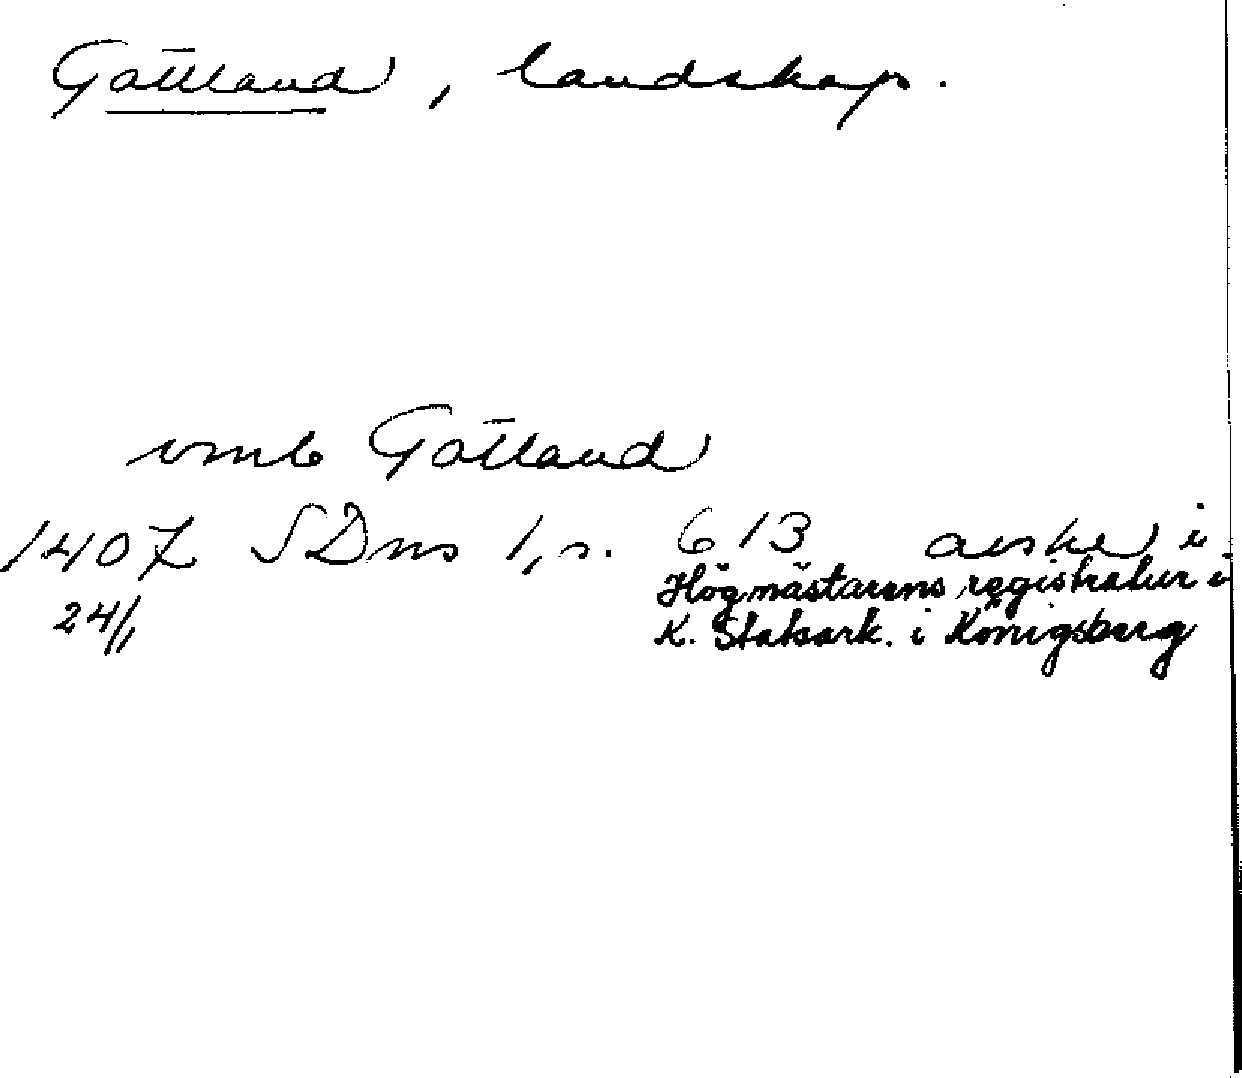 Gottland, landskap.
vmb Gotland
1407 SDns 1, s. 613 avskr i
24/1
Högmästarens registratur i
K. Statsark. i Königsberg